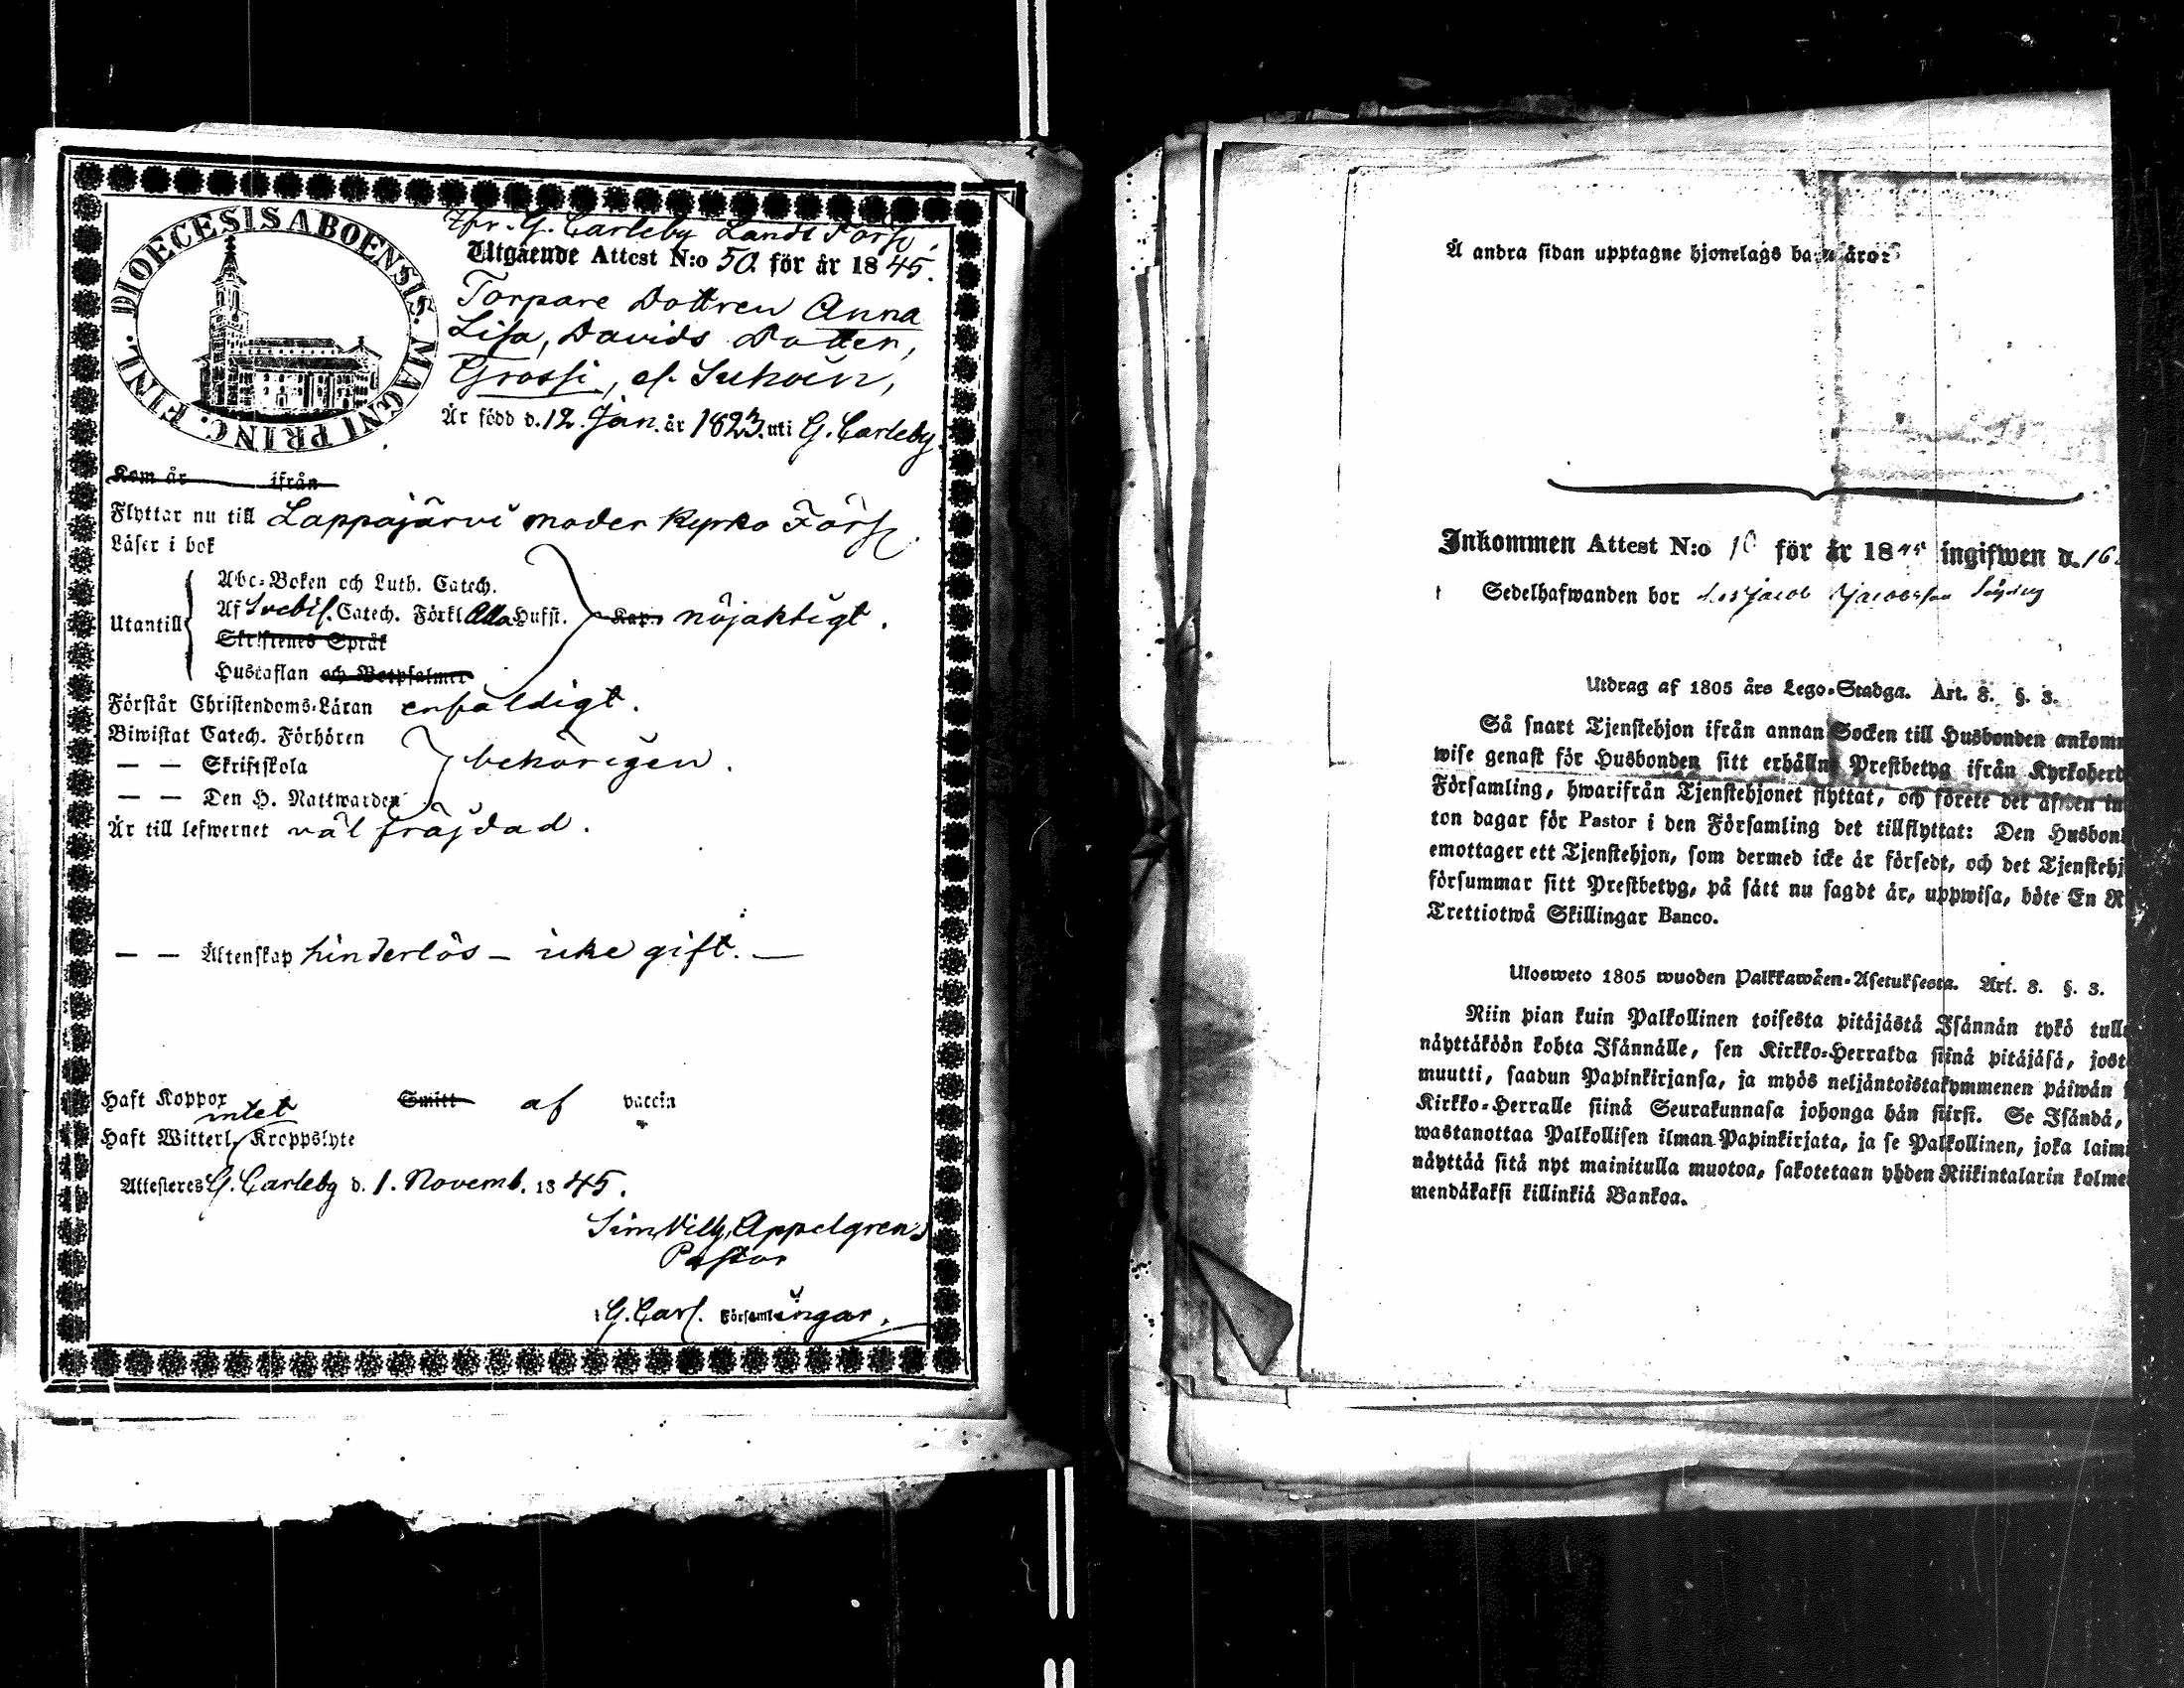 DIOECESIS ABOENSIS. MAGNI PRINC. FINL.
fr. G. Carleby Lands Förs.
Utgående Attest N:o 50. för år 1845.
Torpare Dottren Anna
Lisa, Davids Dotter,
Grossi,
Är född d. 12. Jan. år 1823. uti G. Carleby.
Kom år ifrån
Flyttar nu till Lappajärvi moder kyrko Förs.
Läser i bok
Abc-Boken och Luth. Catech.
Utantill Af Svebil. Catech. Förkl Alla Hufst. Kan nöjaktigt.
Skriftenes Språk
Hustaflan och Botpsalmer
Förstår Christendoms-Läran enfaldigt.
Biwistat Catech. Förhören
— — Skriftskola behörigen.
— — Den H. Nattwarden
Är till lefwernet väl fräjdad.
— — Ältenskap hinderlös – icke gift. —
Haft Koppor Smitt af vaccin
intet
Haft Witterl. Kroppslyte
Attesteres G. Carleby d. 1. Novemb. 1845.
Sim. Wilh. Appelgren
Pastor
i G. Carl. Församlingar.
Å andra sidan upptagne hjonelags barn äro:
Inkommen Attest N:o 10 för år 1845 ingifwen d. 16.
Sedelhafwanden bor Jacob Jacobsson
Utdrag af 1805 års Lego-Stadga. Art. 8. §. 3.
Så snart Tjenstehjon ifrån annan Socken till Husbonden ankomm
wise genast för Husbonden sitt erhållne Prestbetyg ifrån Kyrkoherd
Församling, hwarifrån Tjenstehjonet flyttat, och förete det äfwen in
ton dagar för Pastor i den Församling det tillflyttat: Den Husbon
emottager ett Tjenstehjon, som dermed icke är försedt, och det Tjenstehj
försummar sitt Prestbetyg, på sätt nu sagdt är, uppwisa, böte En R
Trettiotwå Skillingar Banco.
Ulosweto 1805 wuoden Palkkawäen-Asetuksesta. Art. 8. §. 3.
Niin pian kuin Palkollinen toisesta pitäjästä Isännän tykö tull
näyttäköön kohta Isännälle, sen Kirkko-Herralda siinä pitäjäsä, jost
muutti, saadun Papinkirjansa, ja myös neljäntoistakymmenen päiwän
Kirkko-Herralle siinä Seurakunnasa johonga hän siirsi. Se Isändä,
wastanottaa Palkollisen ilman Papinkirjata, ja se Palkollinen, joka laimi
näyttää sitä nyt mainitulla muotoa, sakotetaan yhden Riikintalarin kolme
mendäkaksi killinkiä Bankoa.